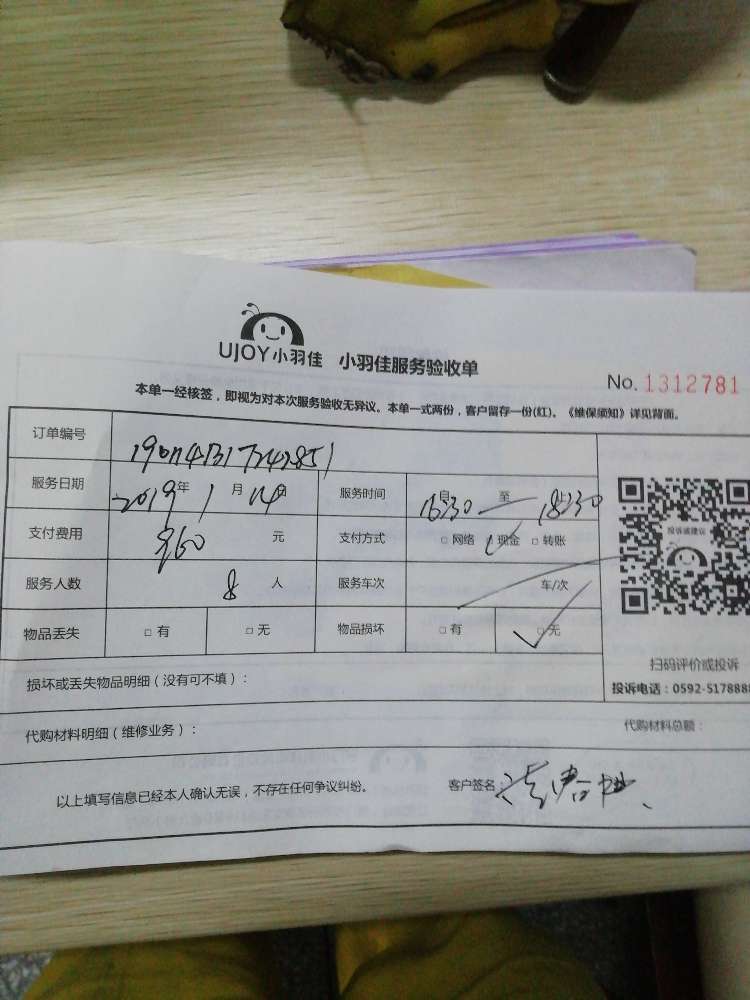 UJOY小羽佳 小羽佳服务验收单
No. 1312781
本单一经核签，即视为对本次服务验收无异议。本单一式两份，客户留存一份(红)。《维保须知》详见背面。
订单编号
服务日期 2019年 1月 14日 服务时间 自 16:30 至 18:30
支付费用 960 元 支付方式 □ 网络 ☑ 现金 □ 转账
服务人数 8 人 服务车次 车/次
物品丢失 □ 有 □ 无 物品损坏 □ 有 ☑ 无
投诉或建议
扫码评价或投诉
投诉电话：0592-5178888
损坏或丢失物品明细（没有可不填）：
代购材料明细（维修业务）： 代购材料总额：
以上填写信息已经本人确认无误，不存在任何争议纠纷。 客户签名：